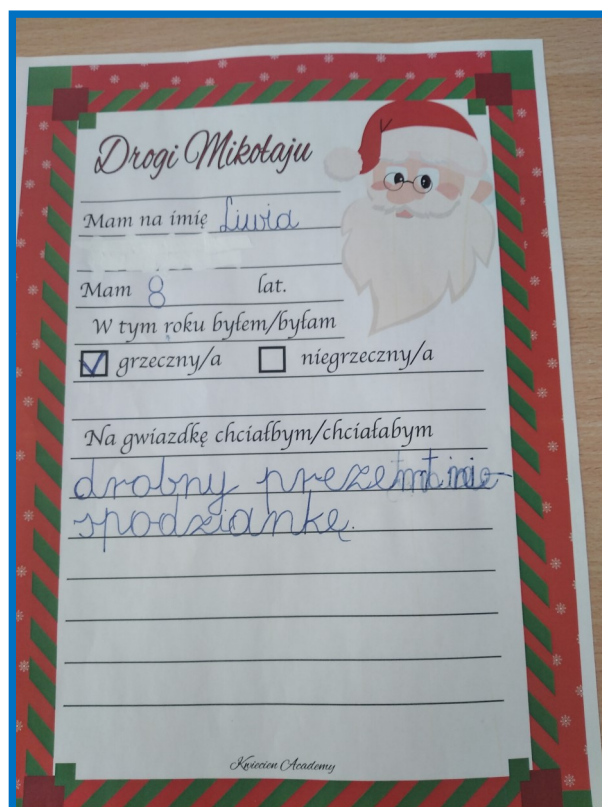 Drogi Mikołaju
Mam na imię Liwia
Mam 8 lat.
W tym roku byłem/byłam
grzeczny/a niegrzeczny/a
Na gwiazdkę chciałbym/chciałabym
drobny prezent nie-
spodziankę.
Kwiecien Academy